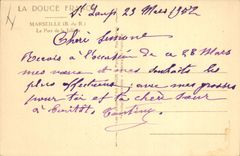 LA DOUCE FR
St Loup, 23 Mars 1942
MARSEILLE (B.-du-R.)
Le Parc de la
Chère Simone
Reçois à l'occasion de ce 28 Mars
mes vœux et mes souhaits les
plus affectueux, avec mes grosses
pour toi et ta chère sœur
à bientôt.